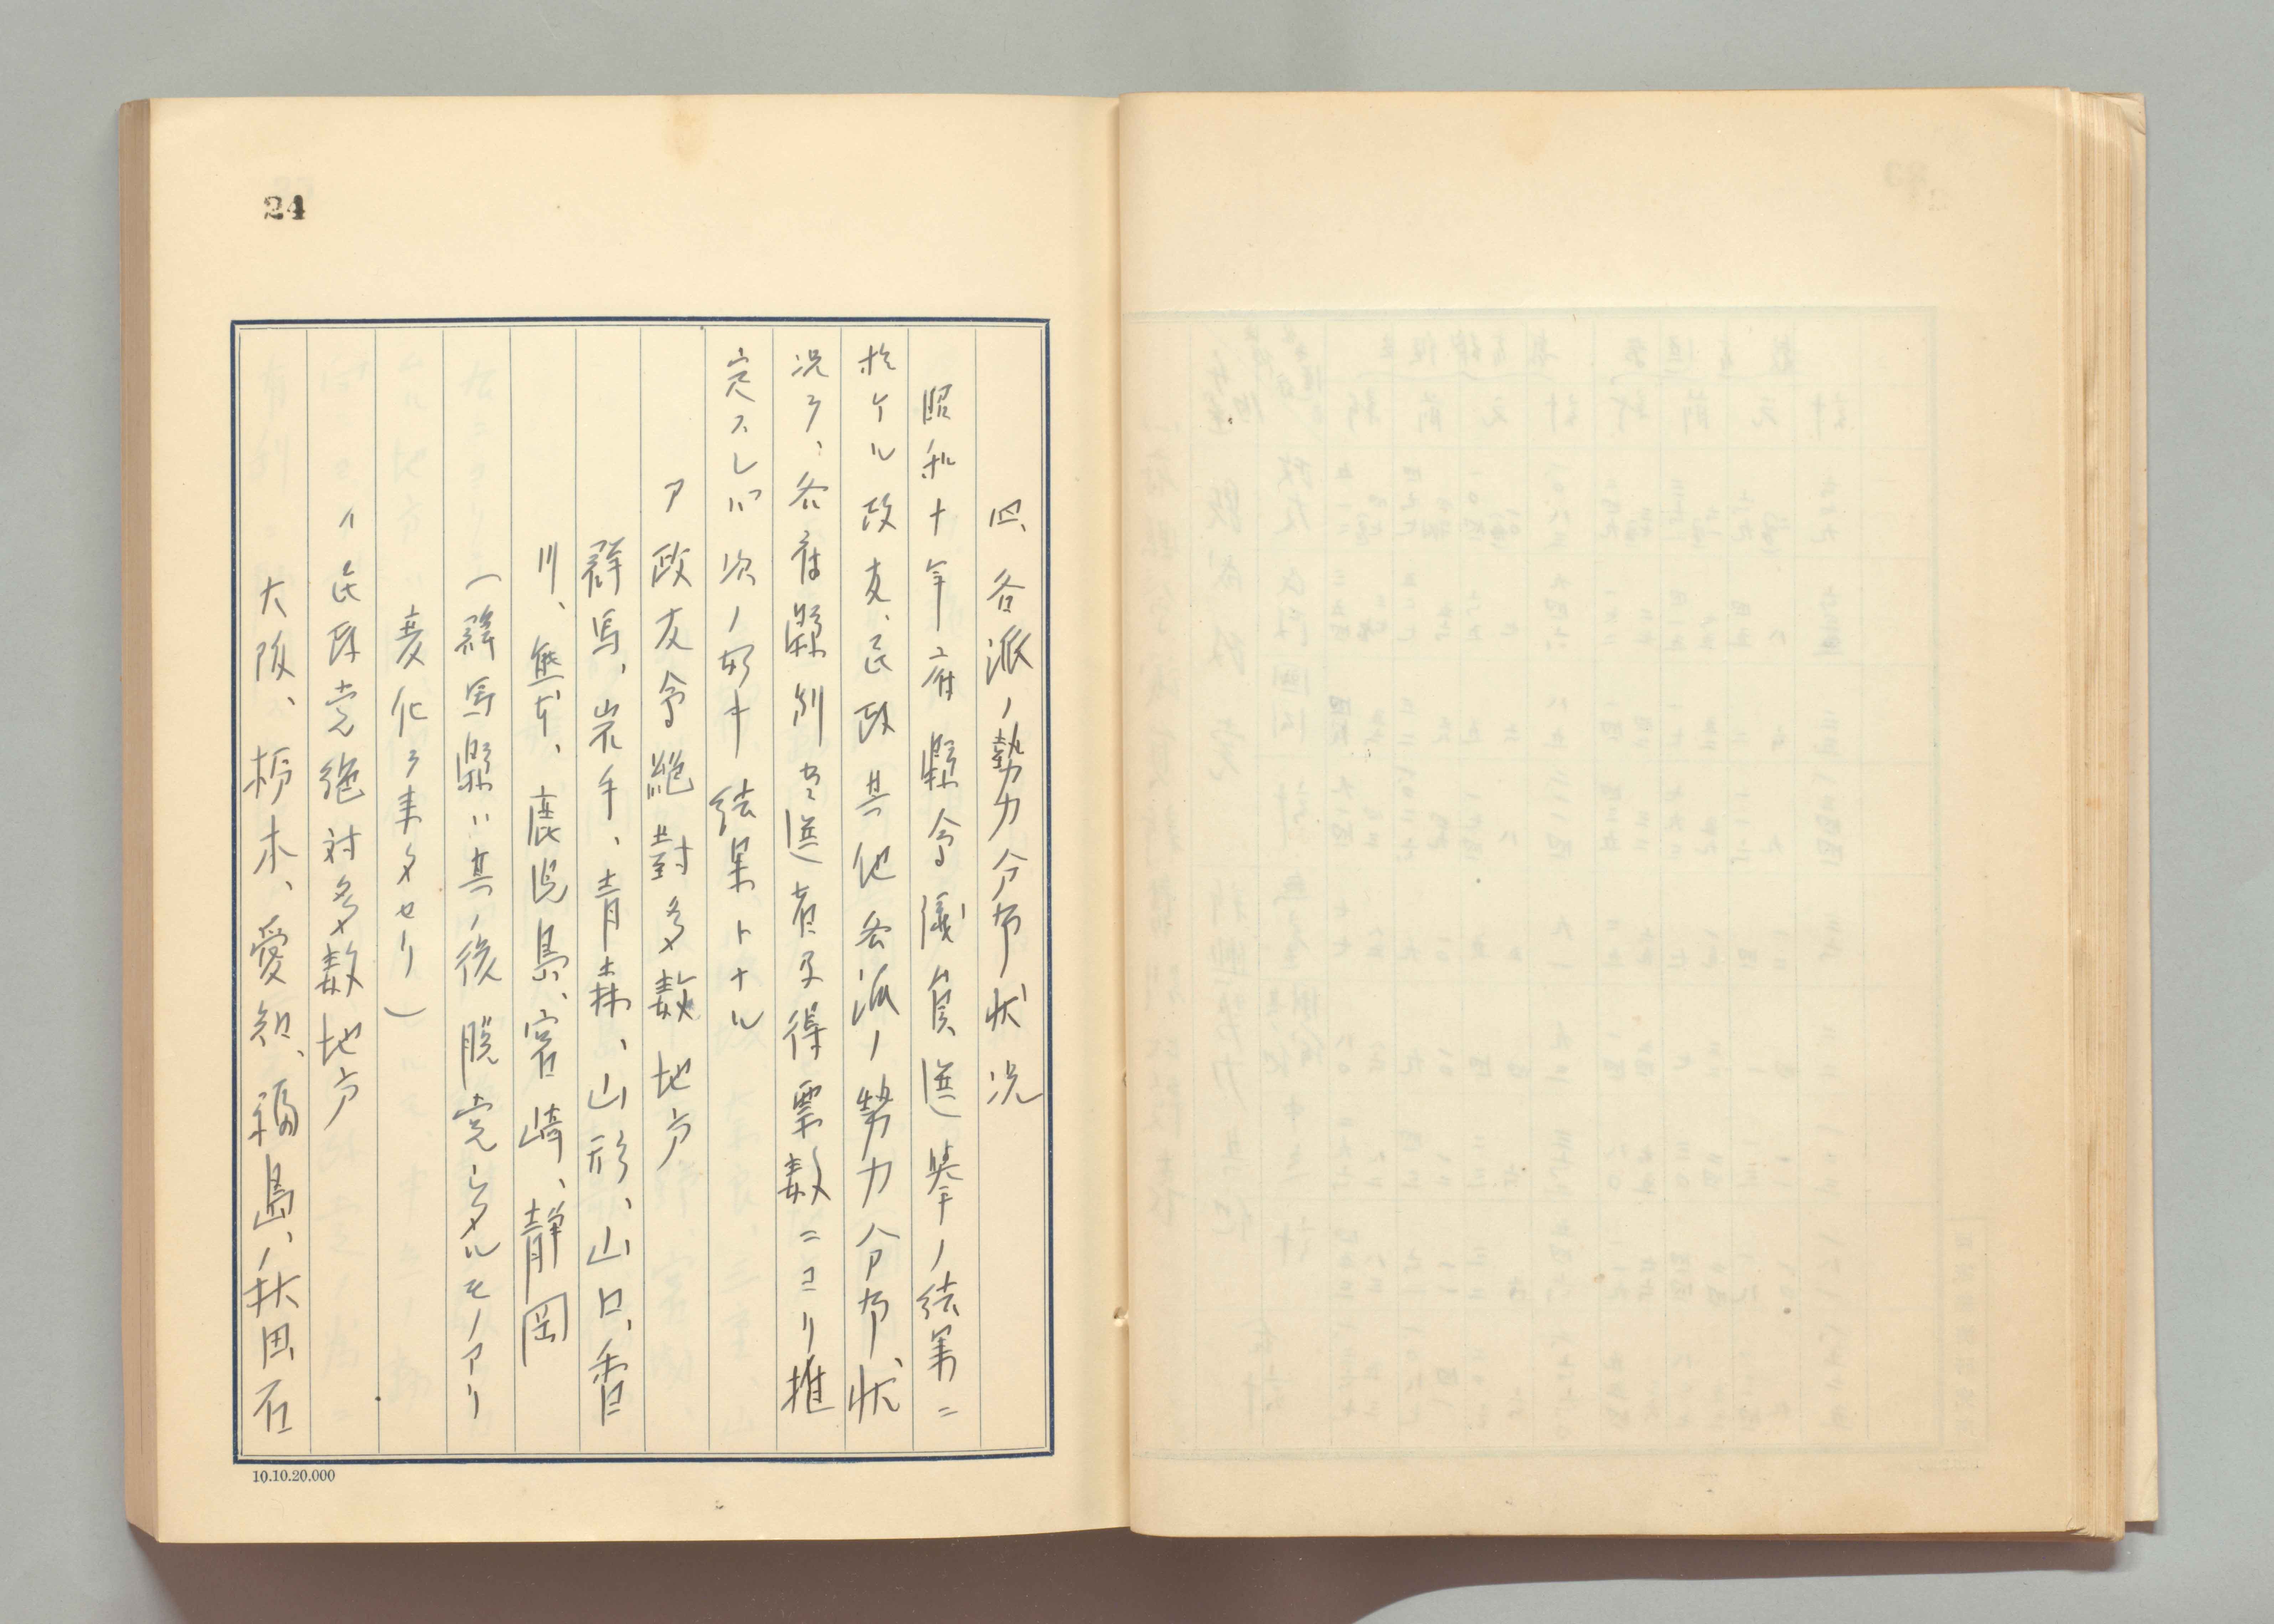 24
四、各派ノ勢力分布状況
昭和十年府縣会議員選挙ノ結果ニ
於ケル政友、民政其他各派ノ勢力分布状
況ヲ、各府縣別当選者及得票数ニヨリ推
定スレバ次ノ如キ結果トナル
ア政友会絶對多数地方
群馬、岩手、青森、山形、山口、香
川、熊本、鹿児島、宮崎、静岡
（群馬縣ハ其ノ後脱党シタルモノアリ
変化ヲ来タセリ）
イ民政党絶対多数地方
大阪、栃木、愛知、福島、秋田、石
10.10.20.000